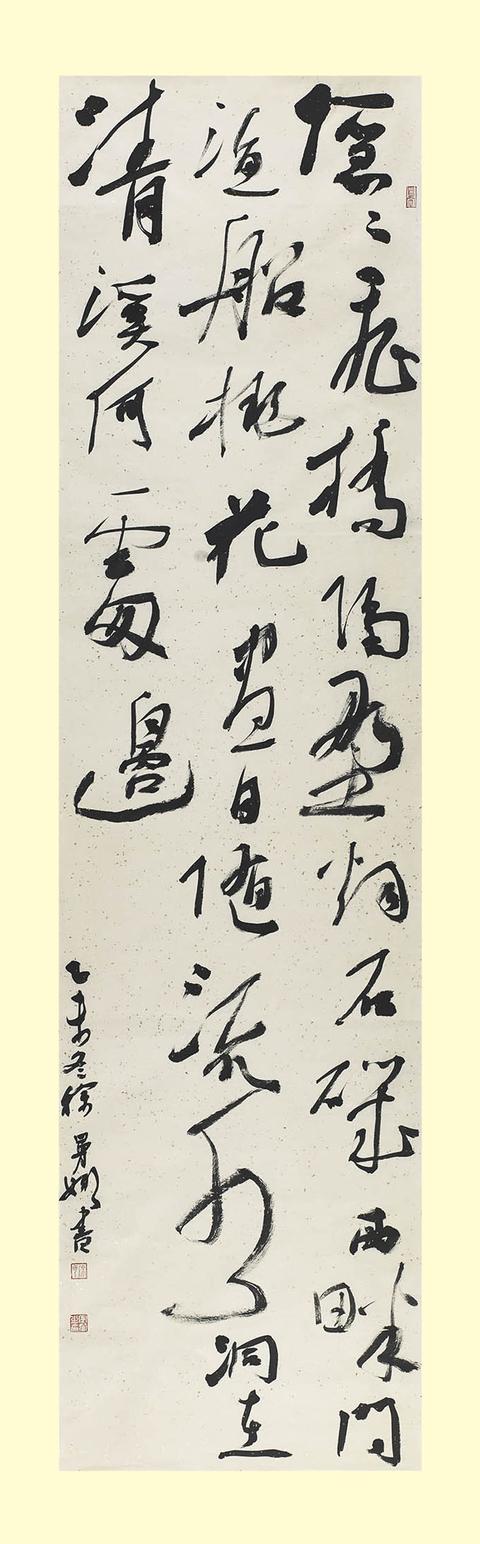 隱〻飛橋隔野烟石磯西畔問
漁船桃花盡日隨流水洞在
清溪何處邊
乙未冬徐娜書